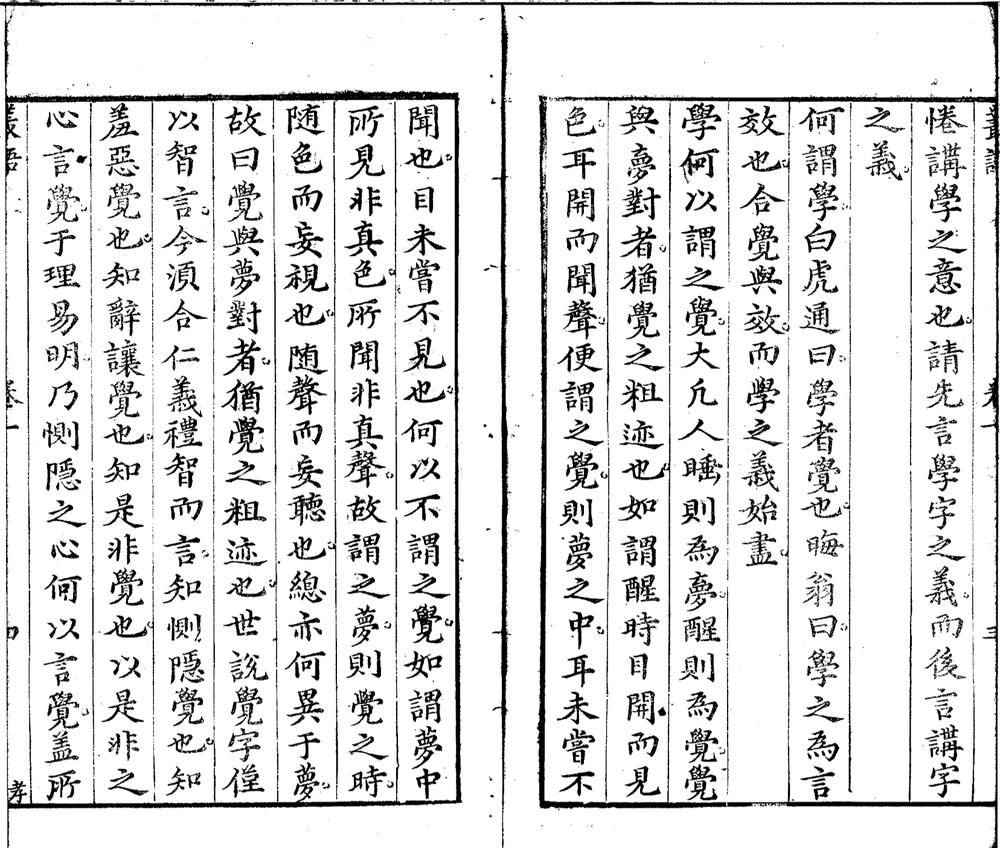 惓講學之意也請先言學字之義而後言講字
之義
何謂學白虎通曰學者覺也晦翁曰學之為言
效也合覺與效而學之義始盡
學何以謂之覺大凢人睡則為夢醒則為覺覺
與夢對者猶覺之粗迹也如謂醒時目開而見
色耳開而聞聲便謂之覺則夢之中耳未嘗不
聞也目未嘗不見也何以不謂之覺如謂夢中
所見非真色所聞非真聲故謂之夢則覺之時
随色而妄視也随聲而妄聽也總亦何異于夢
故曰覺與夢對者猶覺之粗迹也世說覺字僅
以智言今湏合仁義禮智而言知惻隱覺也知
羞惡覺也知辭讓覺也知是非覺也以是非之
心言覺于理易明乃惻隱之心何以言覺盖所